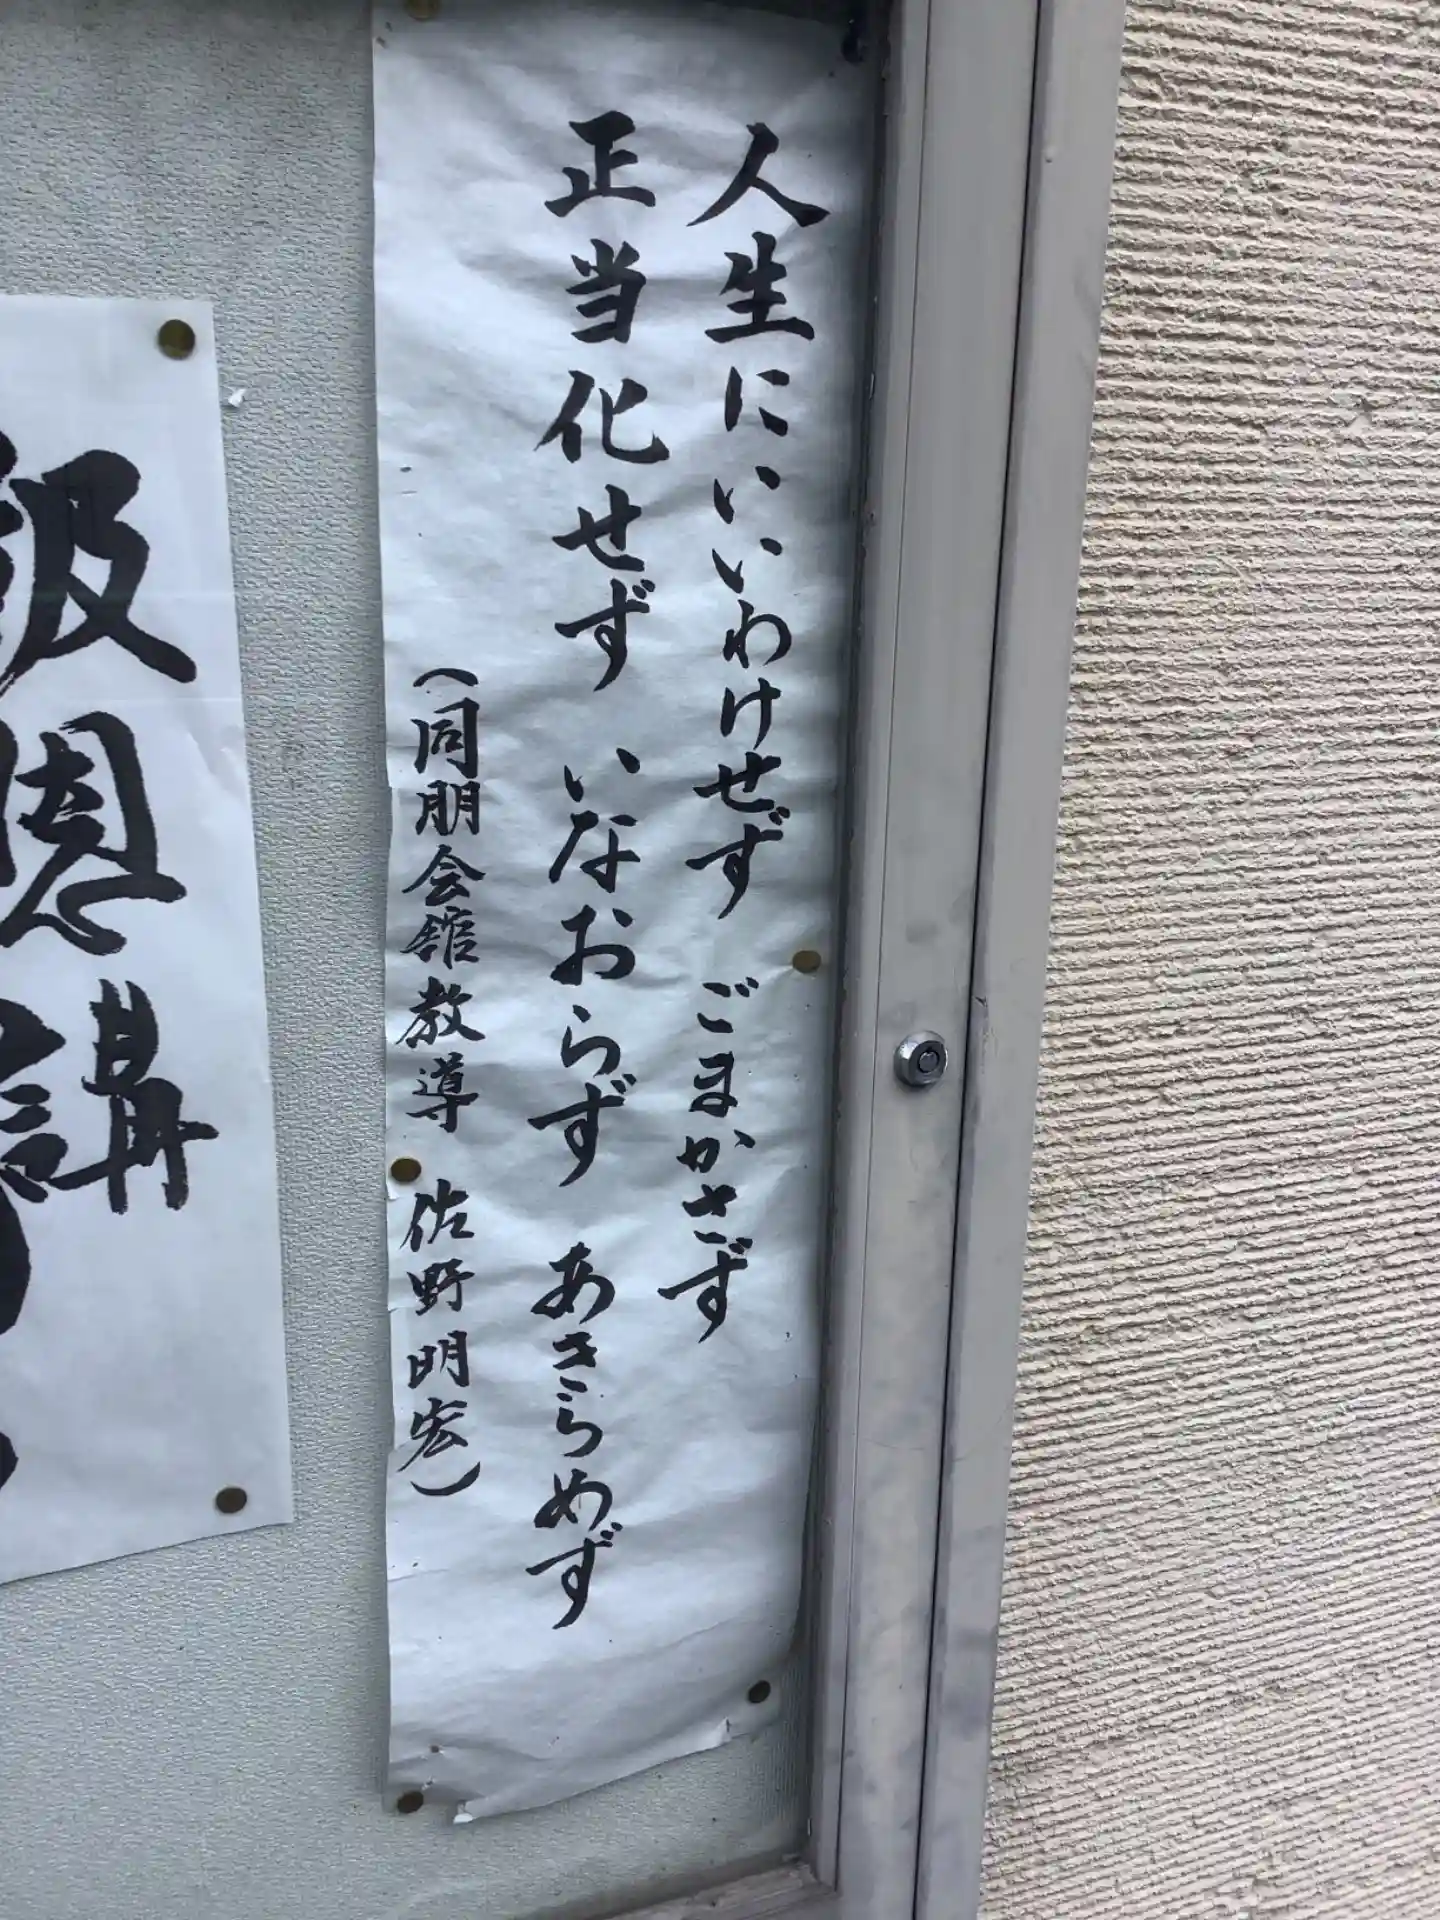 人生にいいわけせず　ごまかさず
正当化せず　いなおらず　あきらめず
(同朋会館教導　佐野明宏)
報恩講